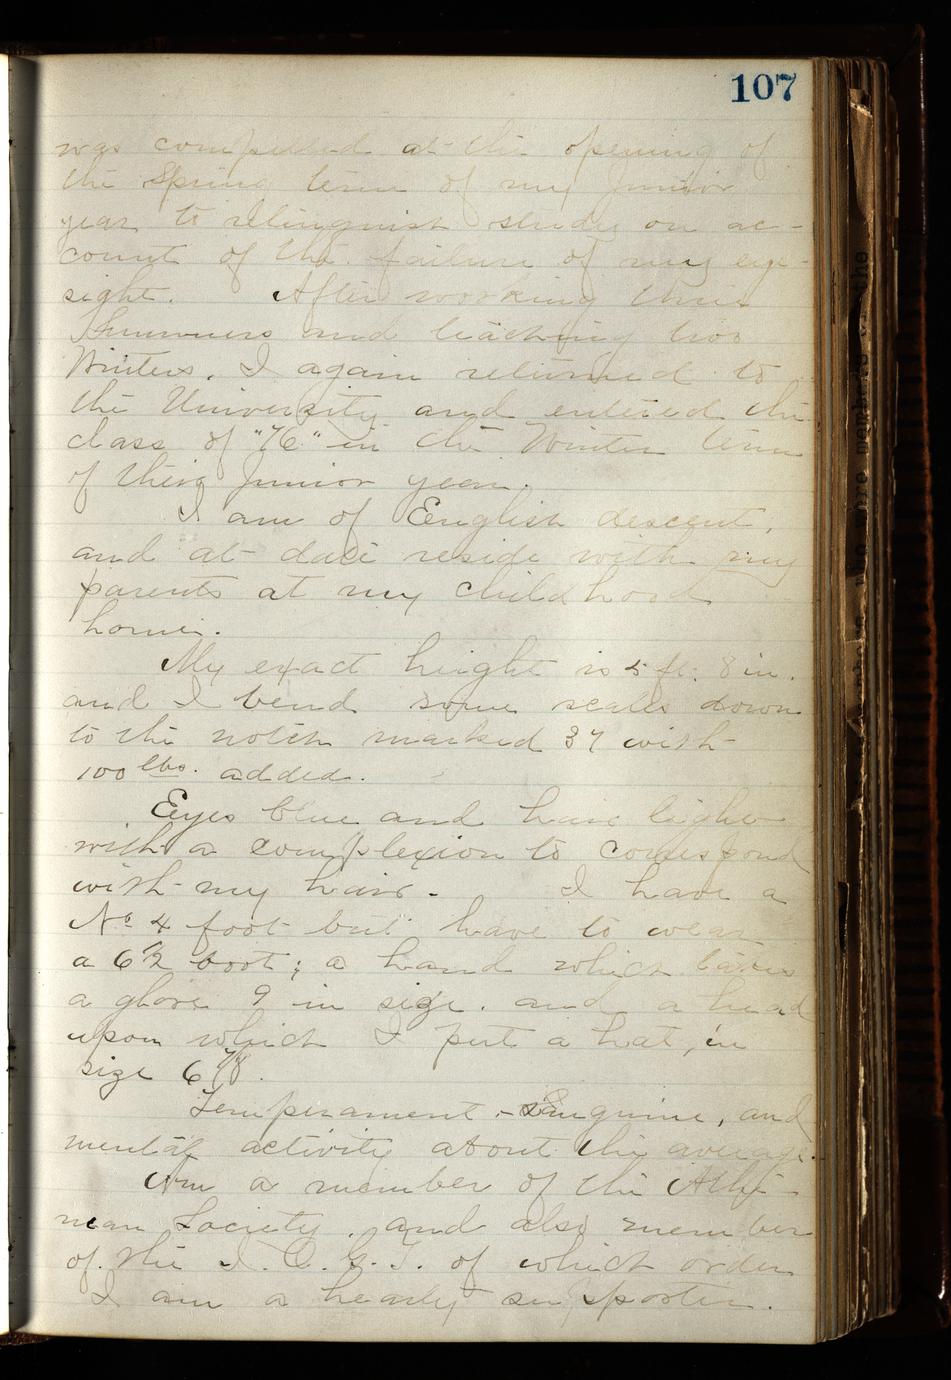 107
was compelled at the opening of
the Spring term of my Junior
year to relinquish study on ac-
count of the failure of my eye-
sight. After working three
Summers and teaching two
Winters, I again returned to
the University and entered the
class of "76" in the Winter term
of their Junior year.
I am of English descent,
and at date reside with my
parents at my childhood
home.
My exact height is 5 ft. 8 in.
and I bend some scales down
to the notch marked 37 with
100 lbs. added.
Eyes blue and hair light
with a complexion to correspond
with my hair. I have a
No 4 foot but have to wear
a 6½ boot; a hand which takes
a glove 9 in size. and a head
upon which I put a hat, in
size 6 7/8.
Temperament - sanguine, and
mental activity about the average.
Am a member of the Athe-
nean Society. and also member
of the I. O. G. T. of which order
I am a hearty supporter.